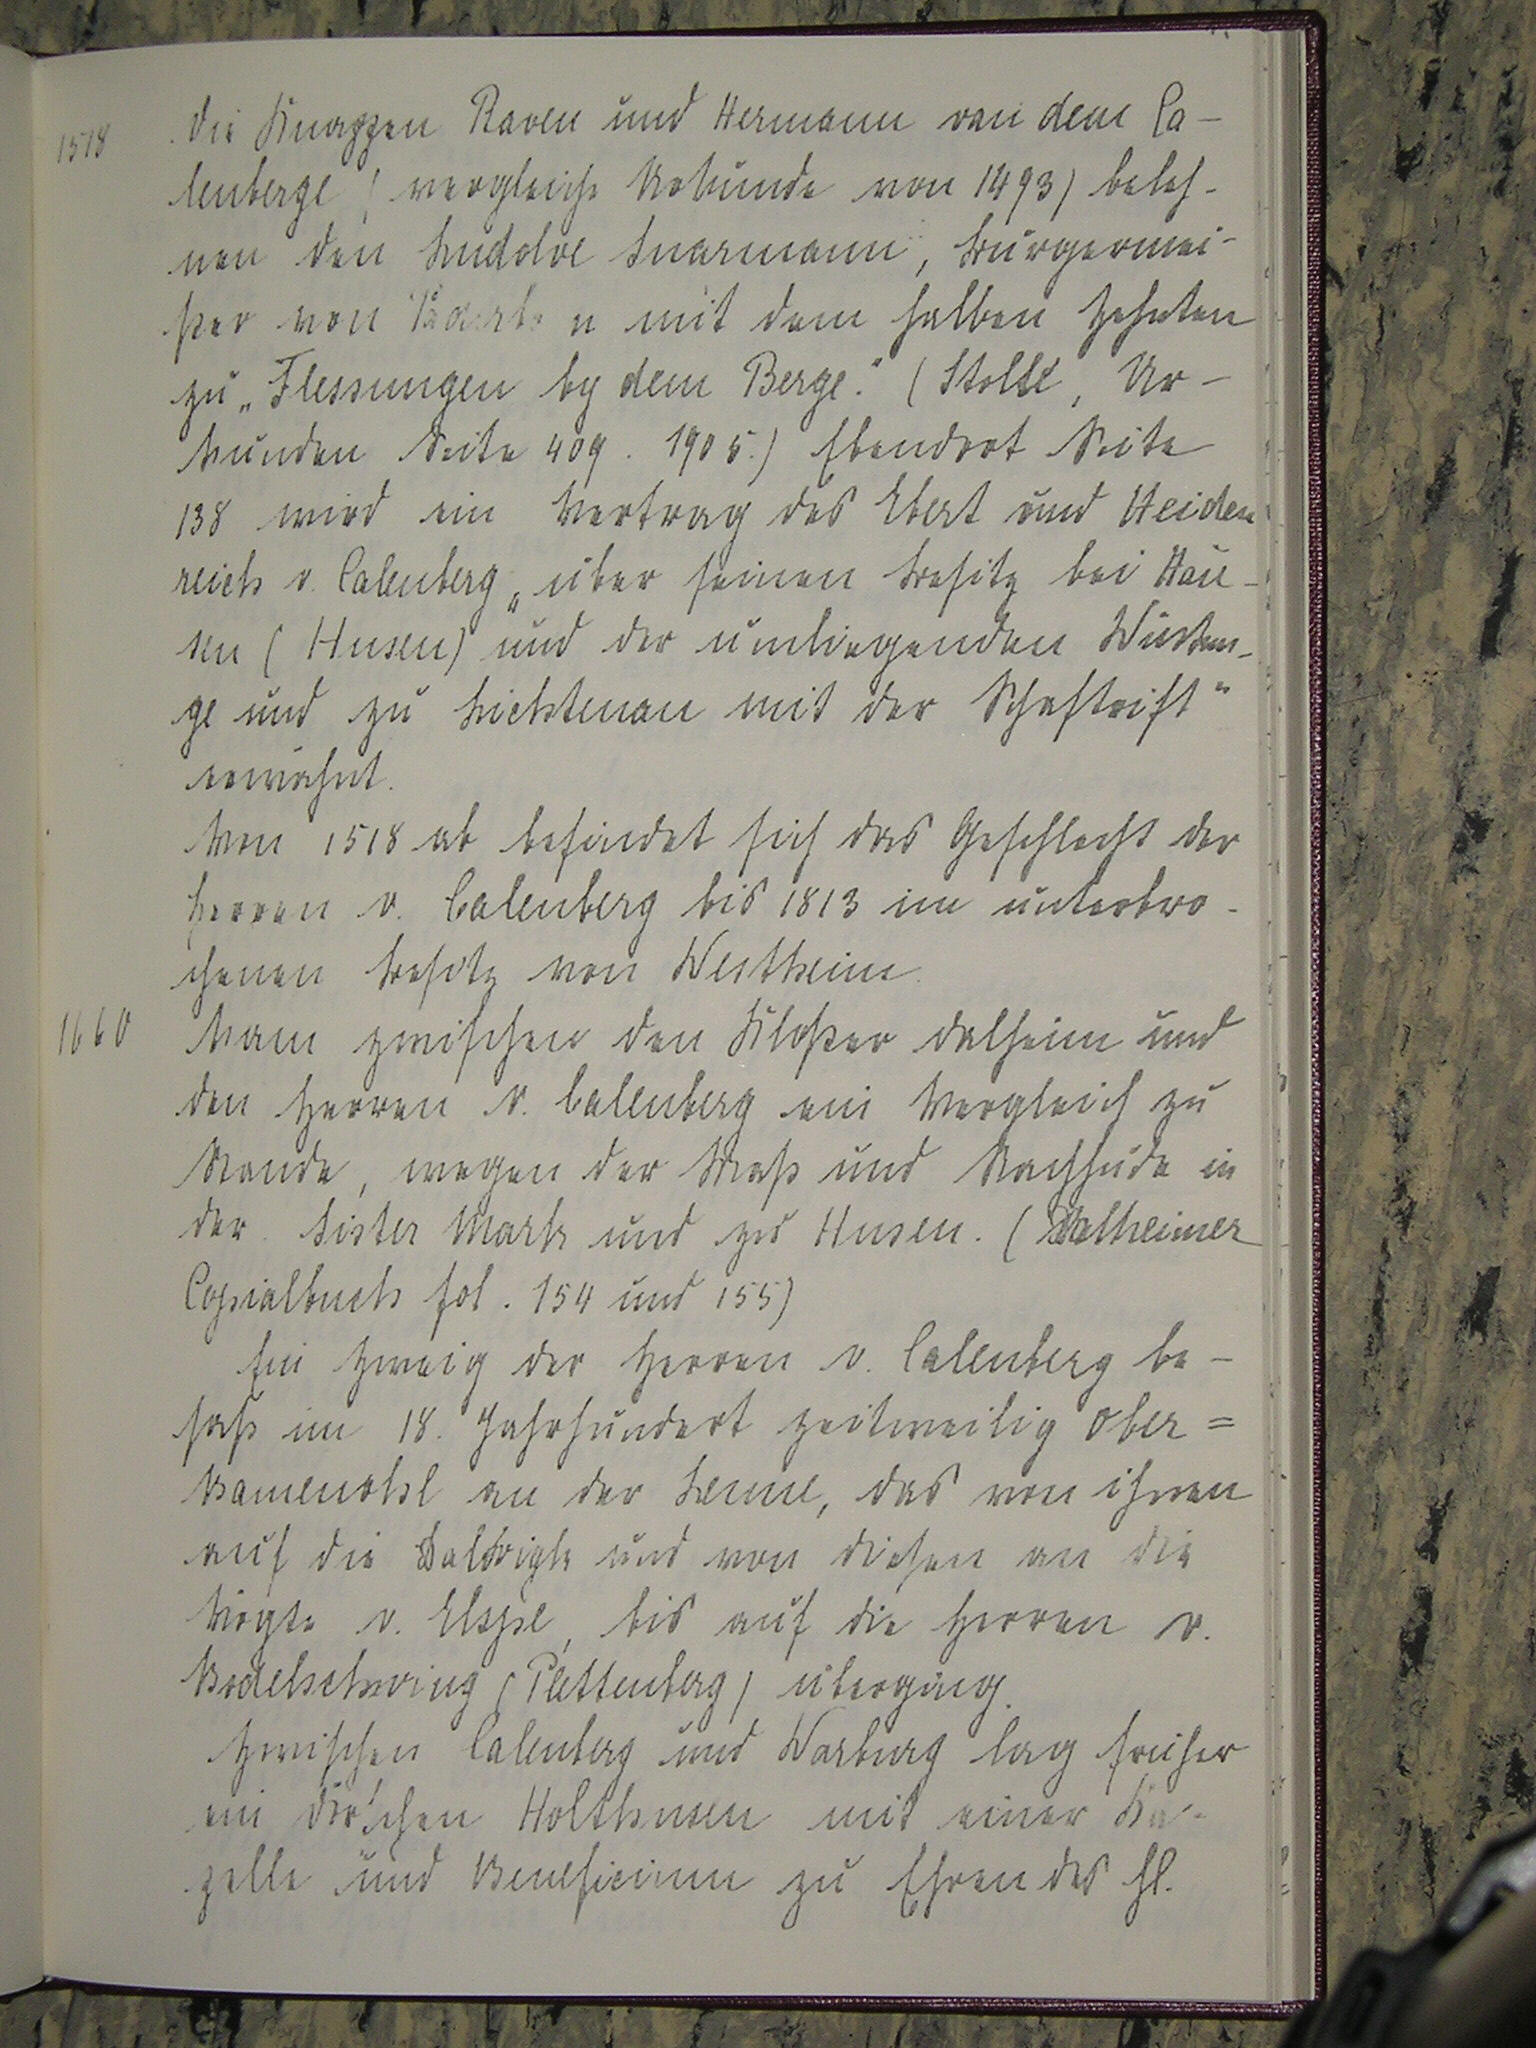 1518 die Knappen Raven und Hermann van dem Ca-
lenberge (vergleiche Urkunde von 1493) beleh-
nen den Ludolve Suarmann, Bürgermei-
ster von n mit dem halben Zehnten
zu „Flessungen by dem Berge." (Stolte, Ur-
kunden Seite 409. 1905.) Ebendort Seite
138 wird ein Vertrag des Ebert und Heiden
reich v. Calenberg „über seinen Besitz bei Hau-
sen (Husen) und der umliegenden
ge und zu Lichtenau mit der Schaftrift"
erwähnt.
Von 1518 ab befindet sich das Geschlecht der
Herren v. Calenberg bis 1813 im unterbro-
chenen Besitz von Westheim.
1660 Kam zwischen den Kloster Dalheim und
den Herren v. Calenberg ein Vergleich zu
Stande, wegen der Mast und Nachhude in
der Sister Mark und zu Husen. (Dalheimer
Copialbuch fol. 154 und 155)
Ein Zweig der Herren v. Calenberg be-
saß im 18. Jahrhundert zeitweilig Ober=
bamenohl an der Lenne, das von ihnen
auf die Dalwigk und von diesen an die
Vögte v. Elspe, bis auf die Herren v.
Bodelschwing (Plettenberg) überging.
Zwischen Calenberg und Warburg lag früher
ein Dörfchen Holthusen mit einer Ka-
pelle und Beneficium zu Ehren des hl.